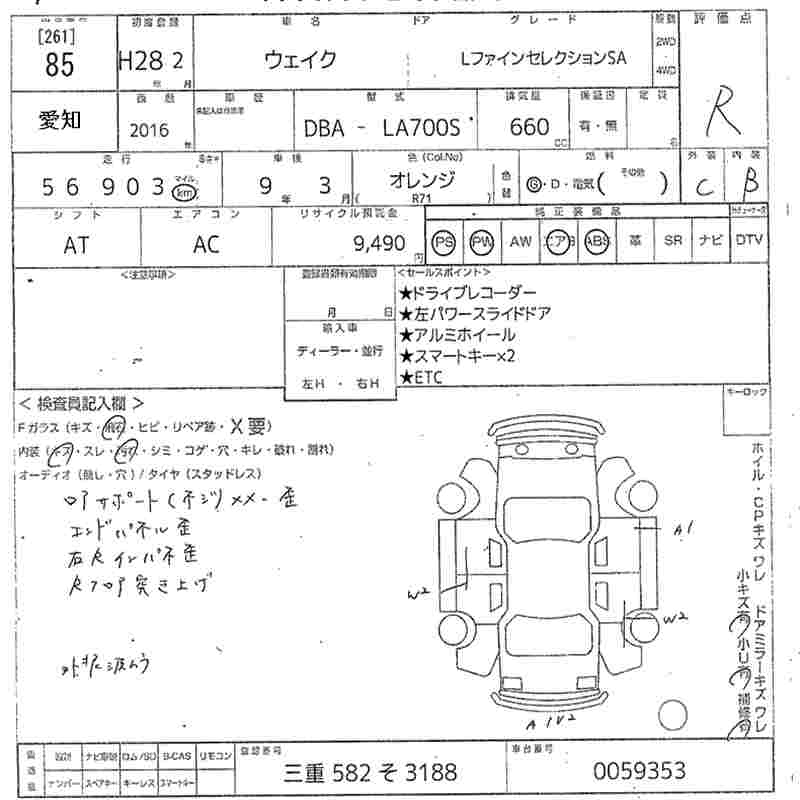 [261] 初度登録 車名 ドア グレード 駆動 評価点
85 H28 2 ウェイク LファインセレクションSA 2WD
年 月 4WD
愛知 西暦 車歴 型式 排気量 保証書 定員 R
自家記入は自家用
2016 年 DBA - LA700S 660 CC 有・無 名
走行 車検 色(Col.No) 燃料 外装 内装
56903 マイル km 9年 3月 オレンジ 色替 G・D・電気( その他 ) C B
R71
シフト エアコン リサイクル預託金 純正装備品
AT AC 9,490円 PS PW AW エアB ABS 革 SR ナビ DTV
<注意事項> 登録書類有効期限 <セールスポイント>
月 日 ★ドライブレコーダー
輸入車 ★左パワースライドドア
ディーラー・並行 ★アルミホイール
★スマートキー×2
左H ・ 右H ★ETC
キーロック
<検査員記入欄>
Fガラス(キズ・飛石・ヒビ・リペア跡・X要)
内装(キズ・スレ・汚れ・シミ・コゲ・穴・キレ・破れ・割れ)
オーディオ(無し・穴)/タイヤ(スタッドレス)
エンドパネル歪
右Rインパネ歪
Rフロア突き上げ
A1
W2
W2
A1U2
ホイル・CPキズワレ ドアミラーキズワレ
小キズ有 小U有 補修有
設計 ナビ取説 ロム/SD B-CAS リモコン 登録番号 車台番号
ナンバー スペアキー キーレス スマートキー 三重 582 そ 3188 0059353